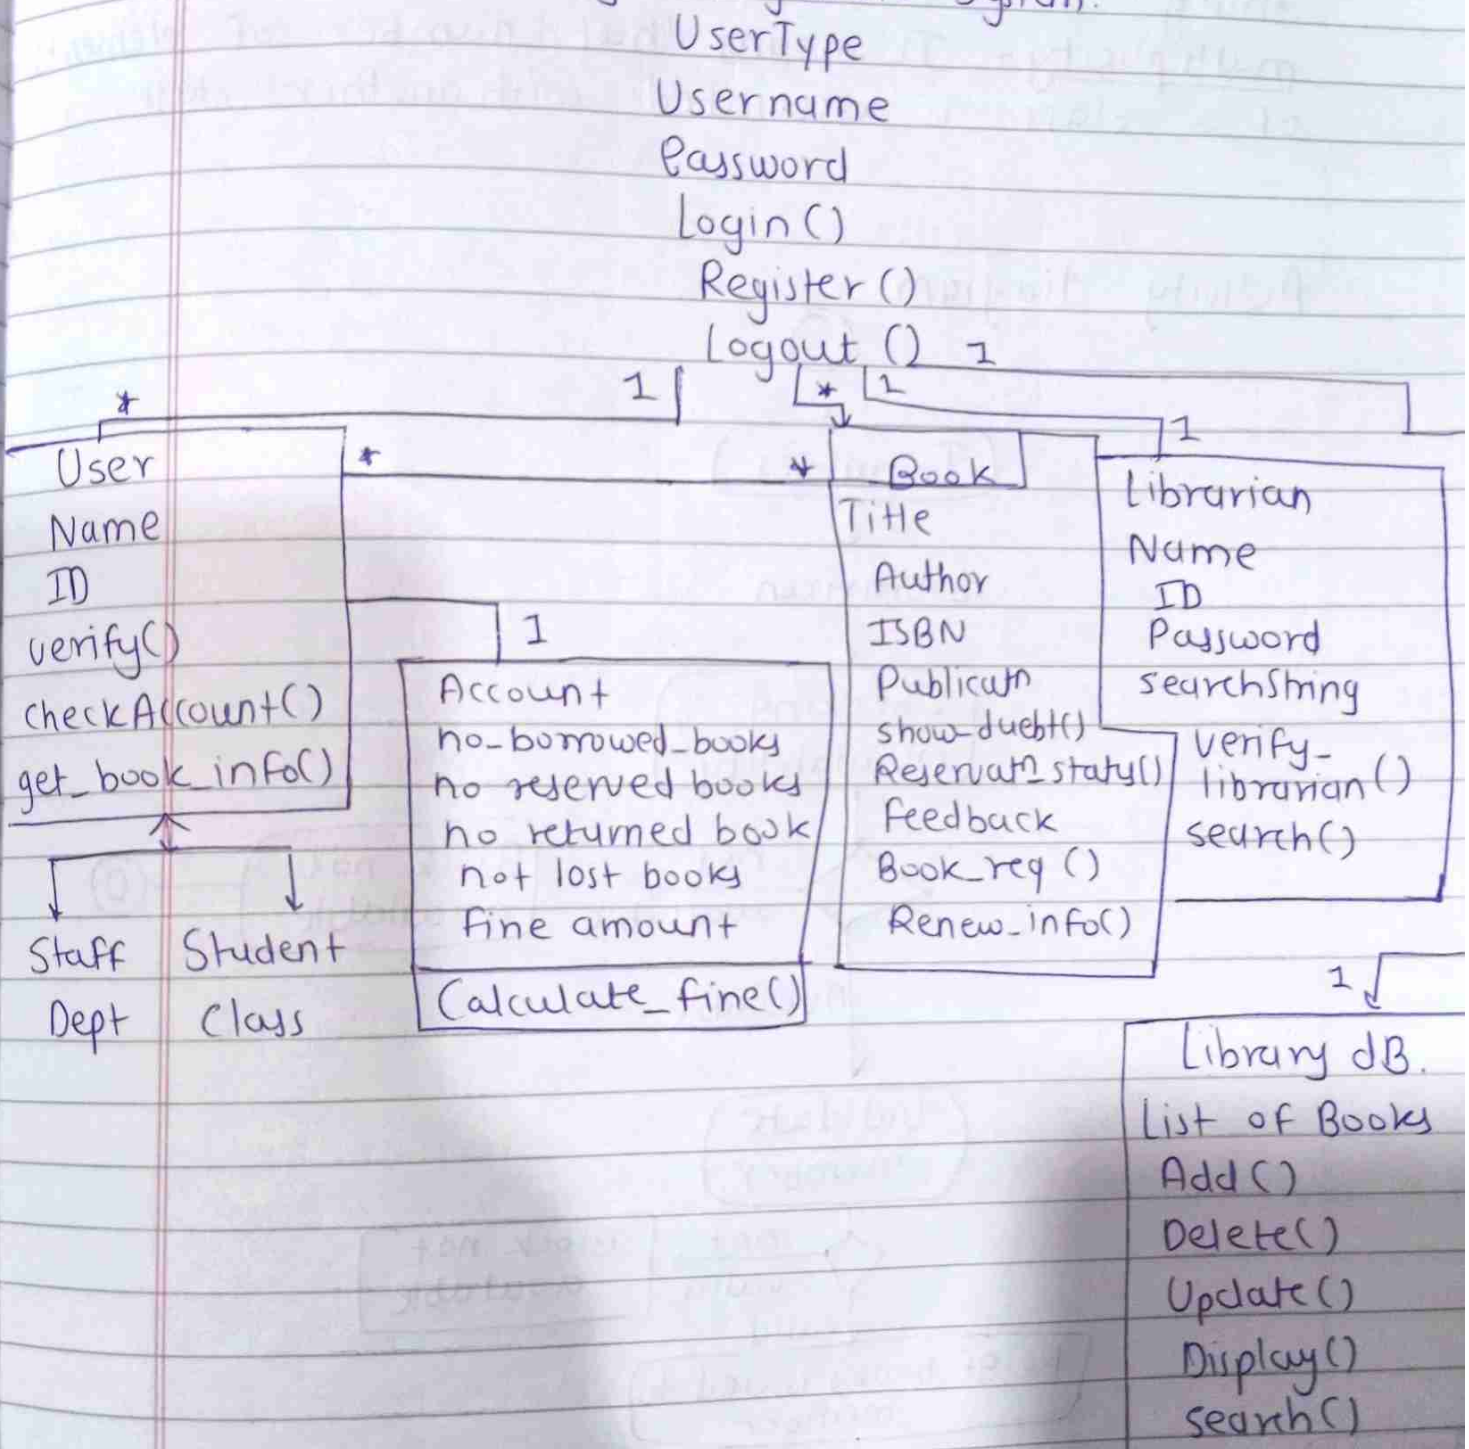 System.
UserType
Username
Password
Login()
Register()
Logout() 1
1
*
1
*
1
*
*
User
Name
ID
verify()
checkAccount()
get_book_info()
Staff
Dept
Student
Class
1
Account
no_borrowed_books
no reserved books
no returned book
not lost books
fine amount
Calculate_fine()
Book
Title
Author
ISBN
Publicatn
show_duebt()
Reservatn_status()
Feedback
Book_req()
Renew_info()
Librarian
Name
ID
Password
searchString
verify_
librarian()
search()
1
Library dB.
List of Books
Add()
Delete()
Update()
Display()
search()